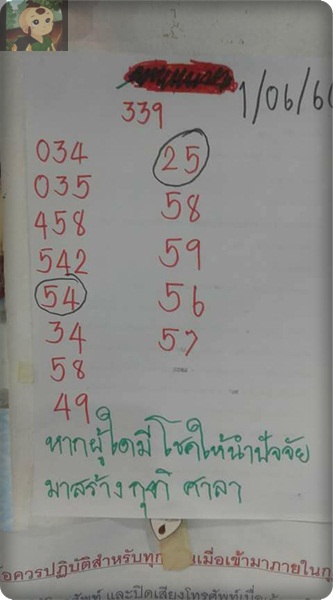 339
1/06/60
034
035
458
542
54
34
58
49
25
58
59
56
57
หากผู้ใดมีโชคให้นำปัจจัย
มาสร้าง กุฏิ ศาลา
อควรปฏิบัติสำหรับทุก นเมื่อเข้ามาภายในกุ
และปิดเสียงโทรศัพท์เพื่อ